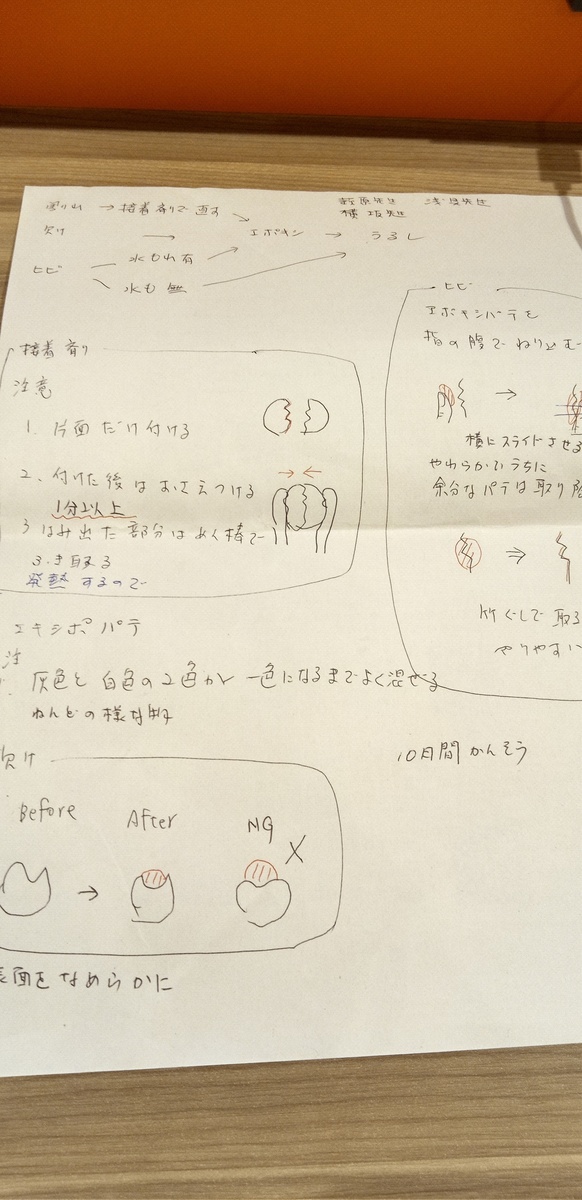 割れ → 接着剤で直す
萩原先生 浅見先生
横坂先生
欠け → エポキシ → うるし
ヒビ
水もれ有
水も 無
接着剤
注意
1. 片面だけ付ける
2. 付けた後はおさえつける
1分以上
3 はみ出た部分はめん棒で
ふき取る
発熱するので
ヒビ
エポキシパテを
指の腹でねり込む
→
横にスライドさせる
やわらかいうちに
余分なパテは取り
⇒
竹ぐしで取る
やりやすい
エキシポパテ
注
灰色と白色の2色が一色になるまでよく混ぜる
ねんどの様な物
欠け
Before
After
NG
X
→
10日間かんそう
表面をなめらかに